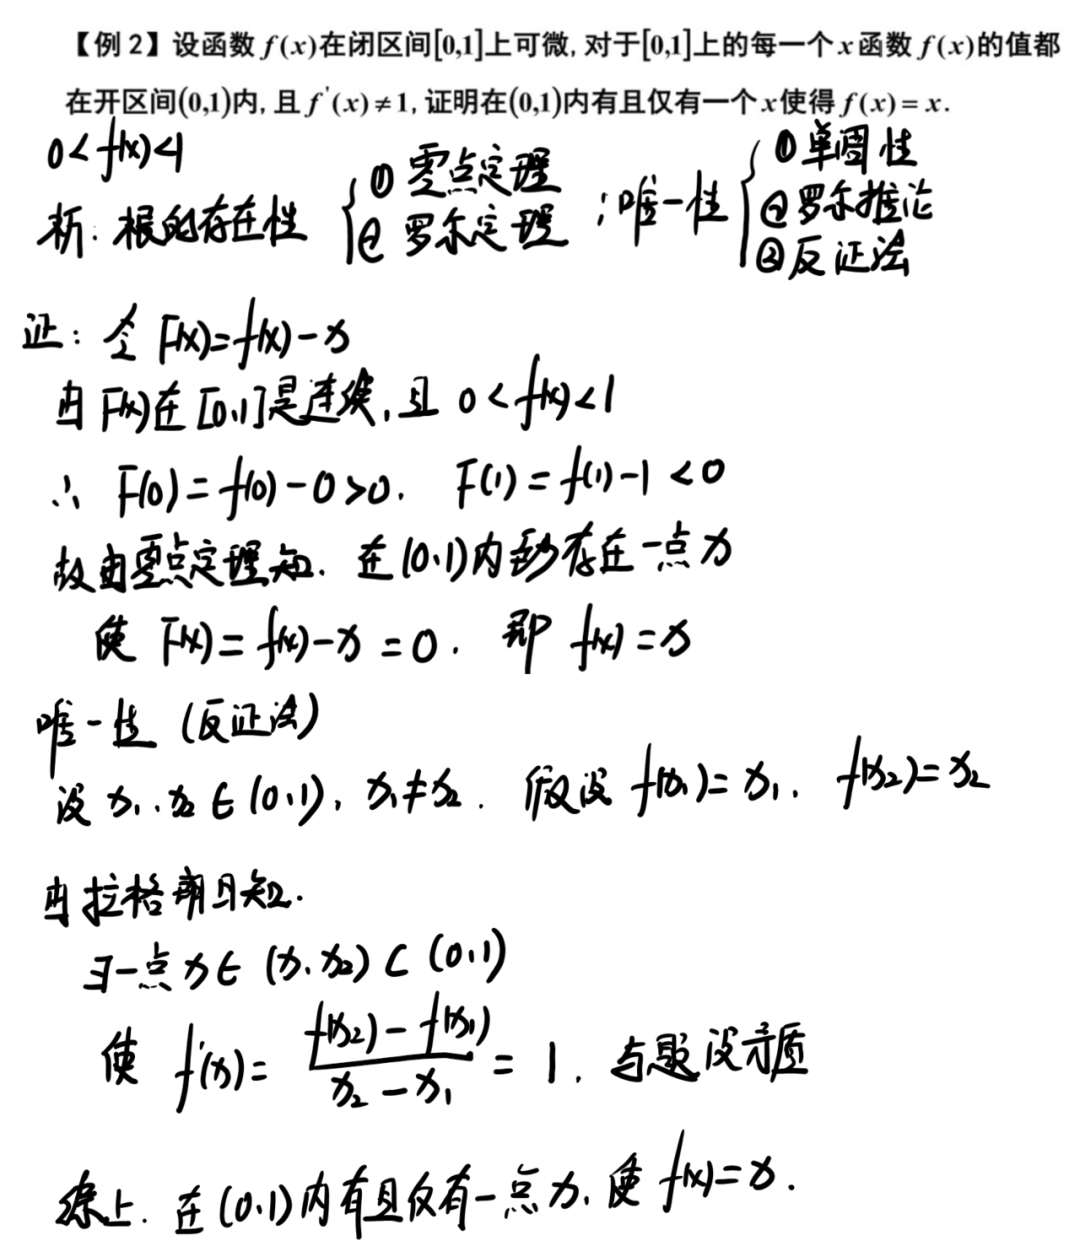 【例 2】设函数 f(x)在闭区间[0,1]上可微, 对于[0,1]上的每一个 x 函数 f(x)的值都
在开区间(0,1)内, 且 f'(x)≠1, 证明在(0,1)内有且仅有一个 x 使得 f(x)=x.
0<f(x)<1
析: 根的存在性 { ① 零点定理 ② 罗尔定理 ; 唯一性 { ① 单调性 ② 罗尔推论 ③ 反证法
证: 令 F(x)=f(x)-x
由 F(x)在[0,1]是连续, 且 0<f(x)<1
∴ F(0)=f(0)-0>0. F(1)=f(1)-1<0
故由零点定理知. 在(0,1)内至少存在一点x
使 F(x)=f(x)-x=0. 即 f(x)=x
唯一性 (反证法)
设 x₁, x₂∈(0,1), x₁≠x₂. 假设 f(x₁)=x₁, f(x₂)=x₂
由拉格朗日知.
∃一点 x∈(x₁,x₂)⊂(0,1)
使 f'(x)= (f(x₂)-f(x₁))/(x₂-x₁) = 1, 与题设矛盾
综上. 在(0,1)内有且仅有一点x, 使 f(x)=x.